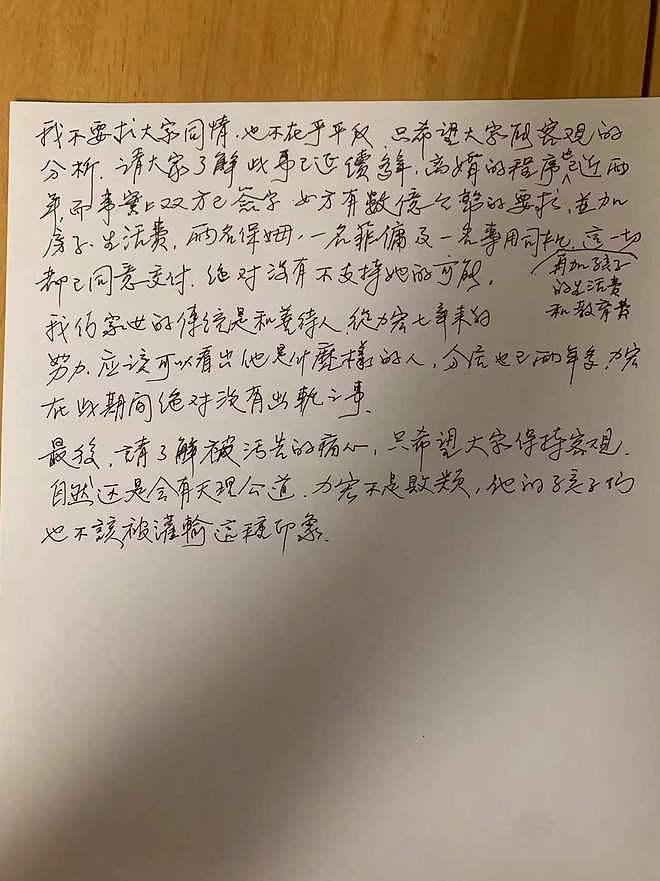 我不要求大家同情,也不在乎平反.只希望大家用客观的
分析.请大家了解此事已延續多年,离婚的程序也近两
年,而事實上双方已簽字 女方有數億台幣的要求,並加
房子.生活費.两名保姆,一名菲傭及一名專用司机.這一切
再加孩子的生活費和教育費
都已同意交付.绝对沒有不支持她的可能.
我们家世的傳統是和善待人 從力宏七年来的
努力.应該可以看出他是什麼樣的人,分居也已两年多.力宏
在此期间绝对沒有出軌之事.
最後,請了解被污告的痛心,只希望大家保持客观.
自然还是会有天理公道.力宏不是败類,他的孩子们
也不該被灌輸這種印象.